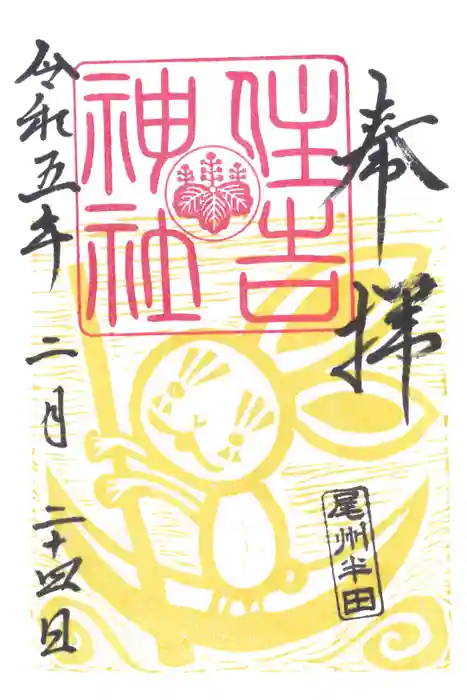 奉拝
住吉
神社
尾州半田
令和五年 二月 二十四日